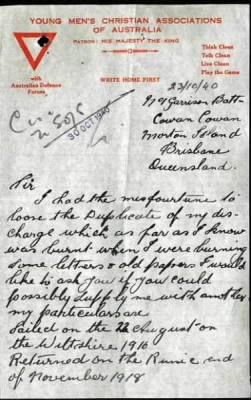 YOUNG MEN'S CHRISTIAN ASSOCIATIONS
OF AUSTRALIA
PATRON: HIS MAJESTY THE KING
Think Clean
Talk Clean
Live Clean
Play the Game
with
Australian Defence
Forces
WRITE HOME FIRST
23/10/40
Garrison Batt
Cowan Cowan
Morton Island
Brisbane
Queensland.
30 OCT 1940
Sir
I had the misfourtune to
loose the Duplicate of my dis-
charge which as far as I know
was burnt when I were burning
some letters & old papers I would
like to ask you if you could
possibly supply me with another
my particulars are
Sailed on the 22 August on
the Wiltshire 1916
Returned on the Runic end
of November 1918